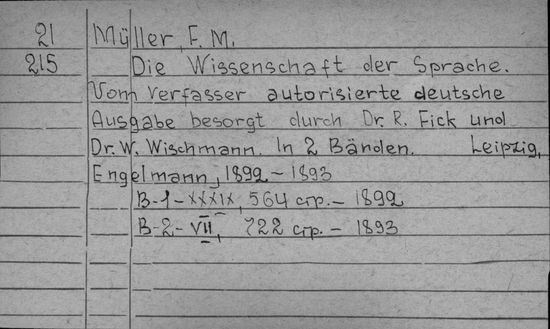 21 Müller, F. M.
215 Die Wissenschaft der Sprache.
Vom Verfasser autorisierte deutsche
Ausgabe besorgt durch Dr. R. Fick und
Dr. W. Wischmann. In 2 Bänden. Leipzig,
Engelmann, 1892-1893
B-1-XXXIX, 564 стр. - 1892
B-2-VII, 722 стр. - 1893